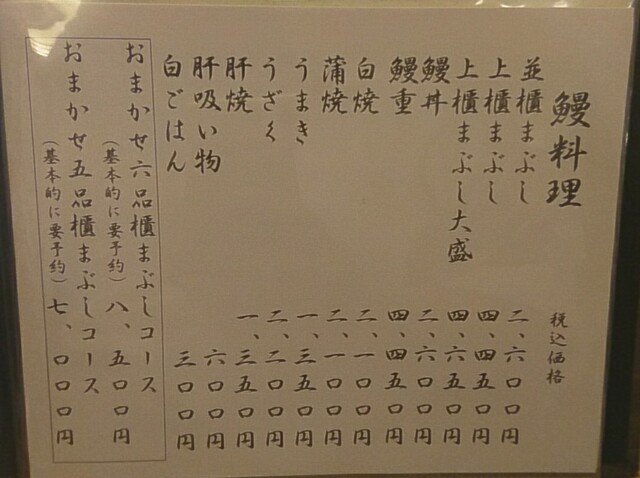 鰻料理 税込価格
並櫃まぶし 二、六〇〇円
上櫃まぶし 四、四五〇円
上櫃まぶし大盛 四、六五〇円
鰻丼 二、六〇〇円
鰻重 四、四五〇円
白焼 二、一〇〇円
蒲焼 二、一〇〇円
うまき 一、三五〇円
うざく 二、二〇〇円
肝焼 一、三五〇円
肝吸い物 六〇〇円
白ごはん 三〇〇円
おまかせ六品櫃まぶしコース
(基本的に要予約) 八、五〇〇円
おまかせ五品櫃まぶしコース
(基本的に要予約) 七、〇〇〇円